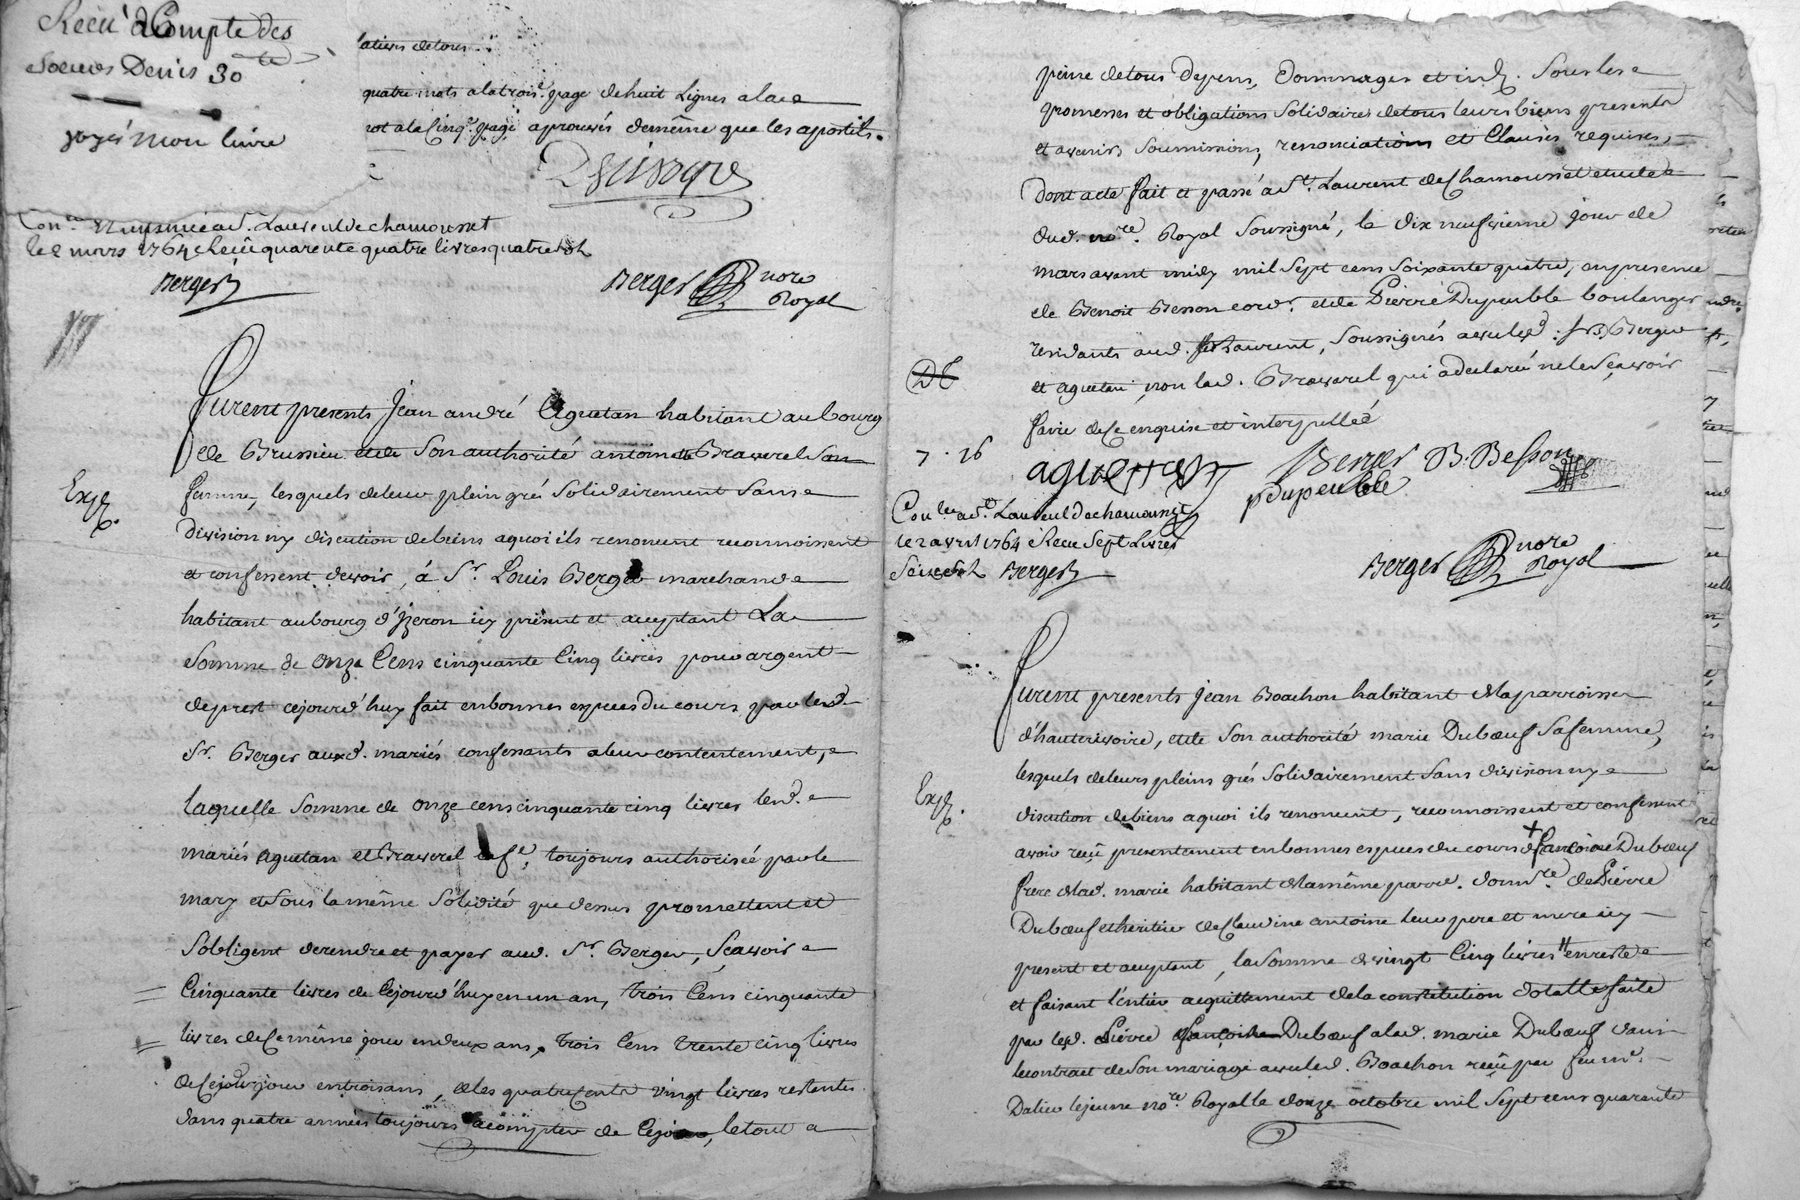 Receu àCompte des
soeurs Denis 30
voyés mon livre
quatre mots alatrois.e page dehuit Lignes alace
rot alacinq.e page aprouvés demême que les apostils.
Con.lé St Laurent de chamousset
le 2 mars 1764 Receu quarente quatre livres quatre sols
Berger
Berger nore
Royal
furent presents Jean andré Aguetan habitant aubourg
de Brussieu etde Son authorité antoinette Braverel San
femme, lesquels deleur plein gré Solidairement Sans
division ny discution debiens aquoi ils renoncent reconnoissent
et confessent devoir, à Sr. Louis Berger marchand
habitant aubourg d'Izeron icy présent et acceptant La
Somme de onze Cens cinquante Cinq livres pour argent
deprest cejourd'huy fait enbonnes especes du cours par led.
Sr. Berger auxd. mariés confessants aleur contentement,
laquelle Somme de onze cens cinquante cinq livres lesd.
mariés Aguetan et Braverel safe. toujours authorisée parle
mary et Sous la même Solidité que dessus promettent et
Sobligent derendre et payer aud. Sr. Berger, Sçavoir
Cinquante livres de Cejourd'huy en un an, trois Cens cinquante
livres deCemême jour endeux ans, trois Cens trente cinq livres
deCejour entroisans, et les quatreCents vingt livres restantes
dans quatre années toujours acompter de Cejour, letout a
peine detous depens, dommages et int. Sous les
promesses et obligations Solidaires detous leurs biens presents
et avenirs Soumissions, renonciations et Clauses requises,
Dont acte fait et passé a St. Laurent deChamousset etude
dud. nore. Royal Soussigné, le dix neufvieme jour de
mars avant midy mil Sept cens Soixante quatre, en presence
de Benoit Besson cord.r et de Pierre Dupeuble boulanger
residants aud. St Laurent, Soussignés avec led. Sr Berger
et aguetan, non lad. Braverel qui adeclaré nele Sçavoir
faire deCe enquise et interpellée
7 . 16
aguetan Berger B. Besson
pdupeuble
Con.lé a St. Laurent de chamousset
le 2 avril 1764 Receu Sept Livres
Seize sols Berger
Berger nore
Royal
furent presents Jean Boachon habitant delaparroisse
d'hauterivoire, etde Son authorité marie Dubœuf Safemme,
lesquels deleurs pleins grés Solidairement Sans division ny
discution debiens aquoi ils renoncent, reconnoissent et confessent
Expé.
Expé.
avoir reçû presentement enbonnes especes du cours de francoise Dubœuf
frere delad. marie habitant delamême parre. donre. de Pierre
Dubœuf et heritier deClaudine antoine leur pere et mere icy
present et acceptant, laSomme devingt Cinq livres enreste
et faisant l'entier acquittement dela constitution dotalle faite
par led. Pierre Dubœuf alad. marie Dubœuf dans
lecontract deSon mariage avecled. Boachon reçû par feu me.
Dalieu lejeune nore. Royal le douze octobre mil Sept cens quarante